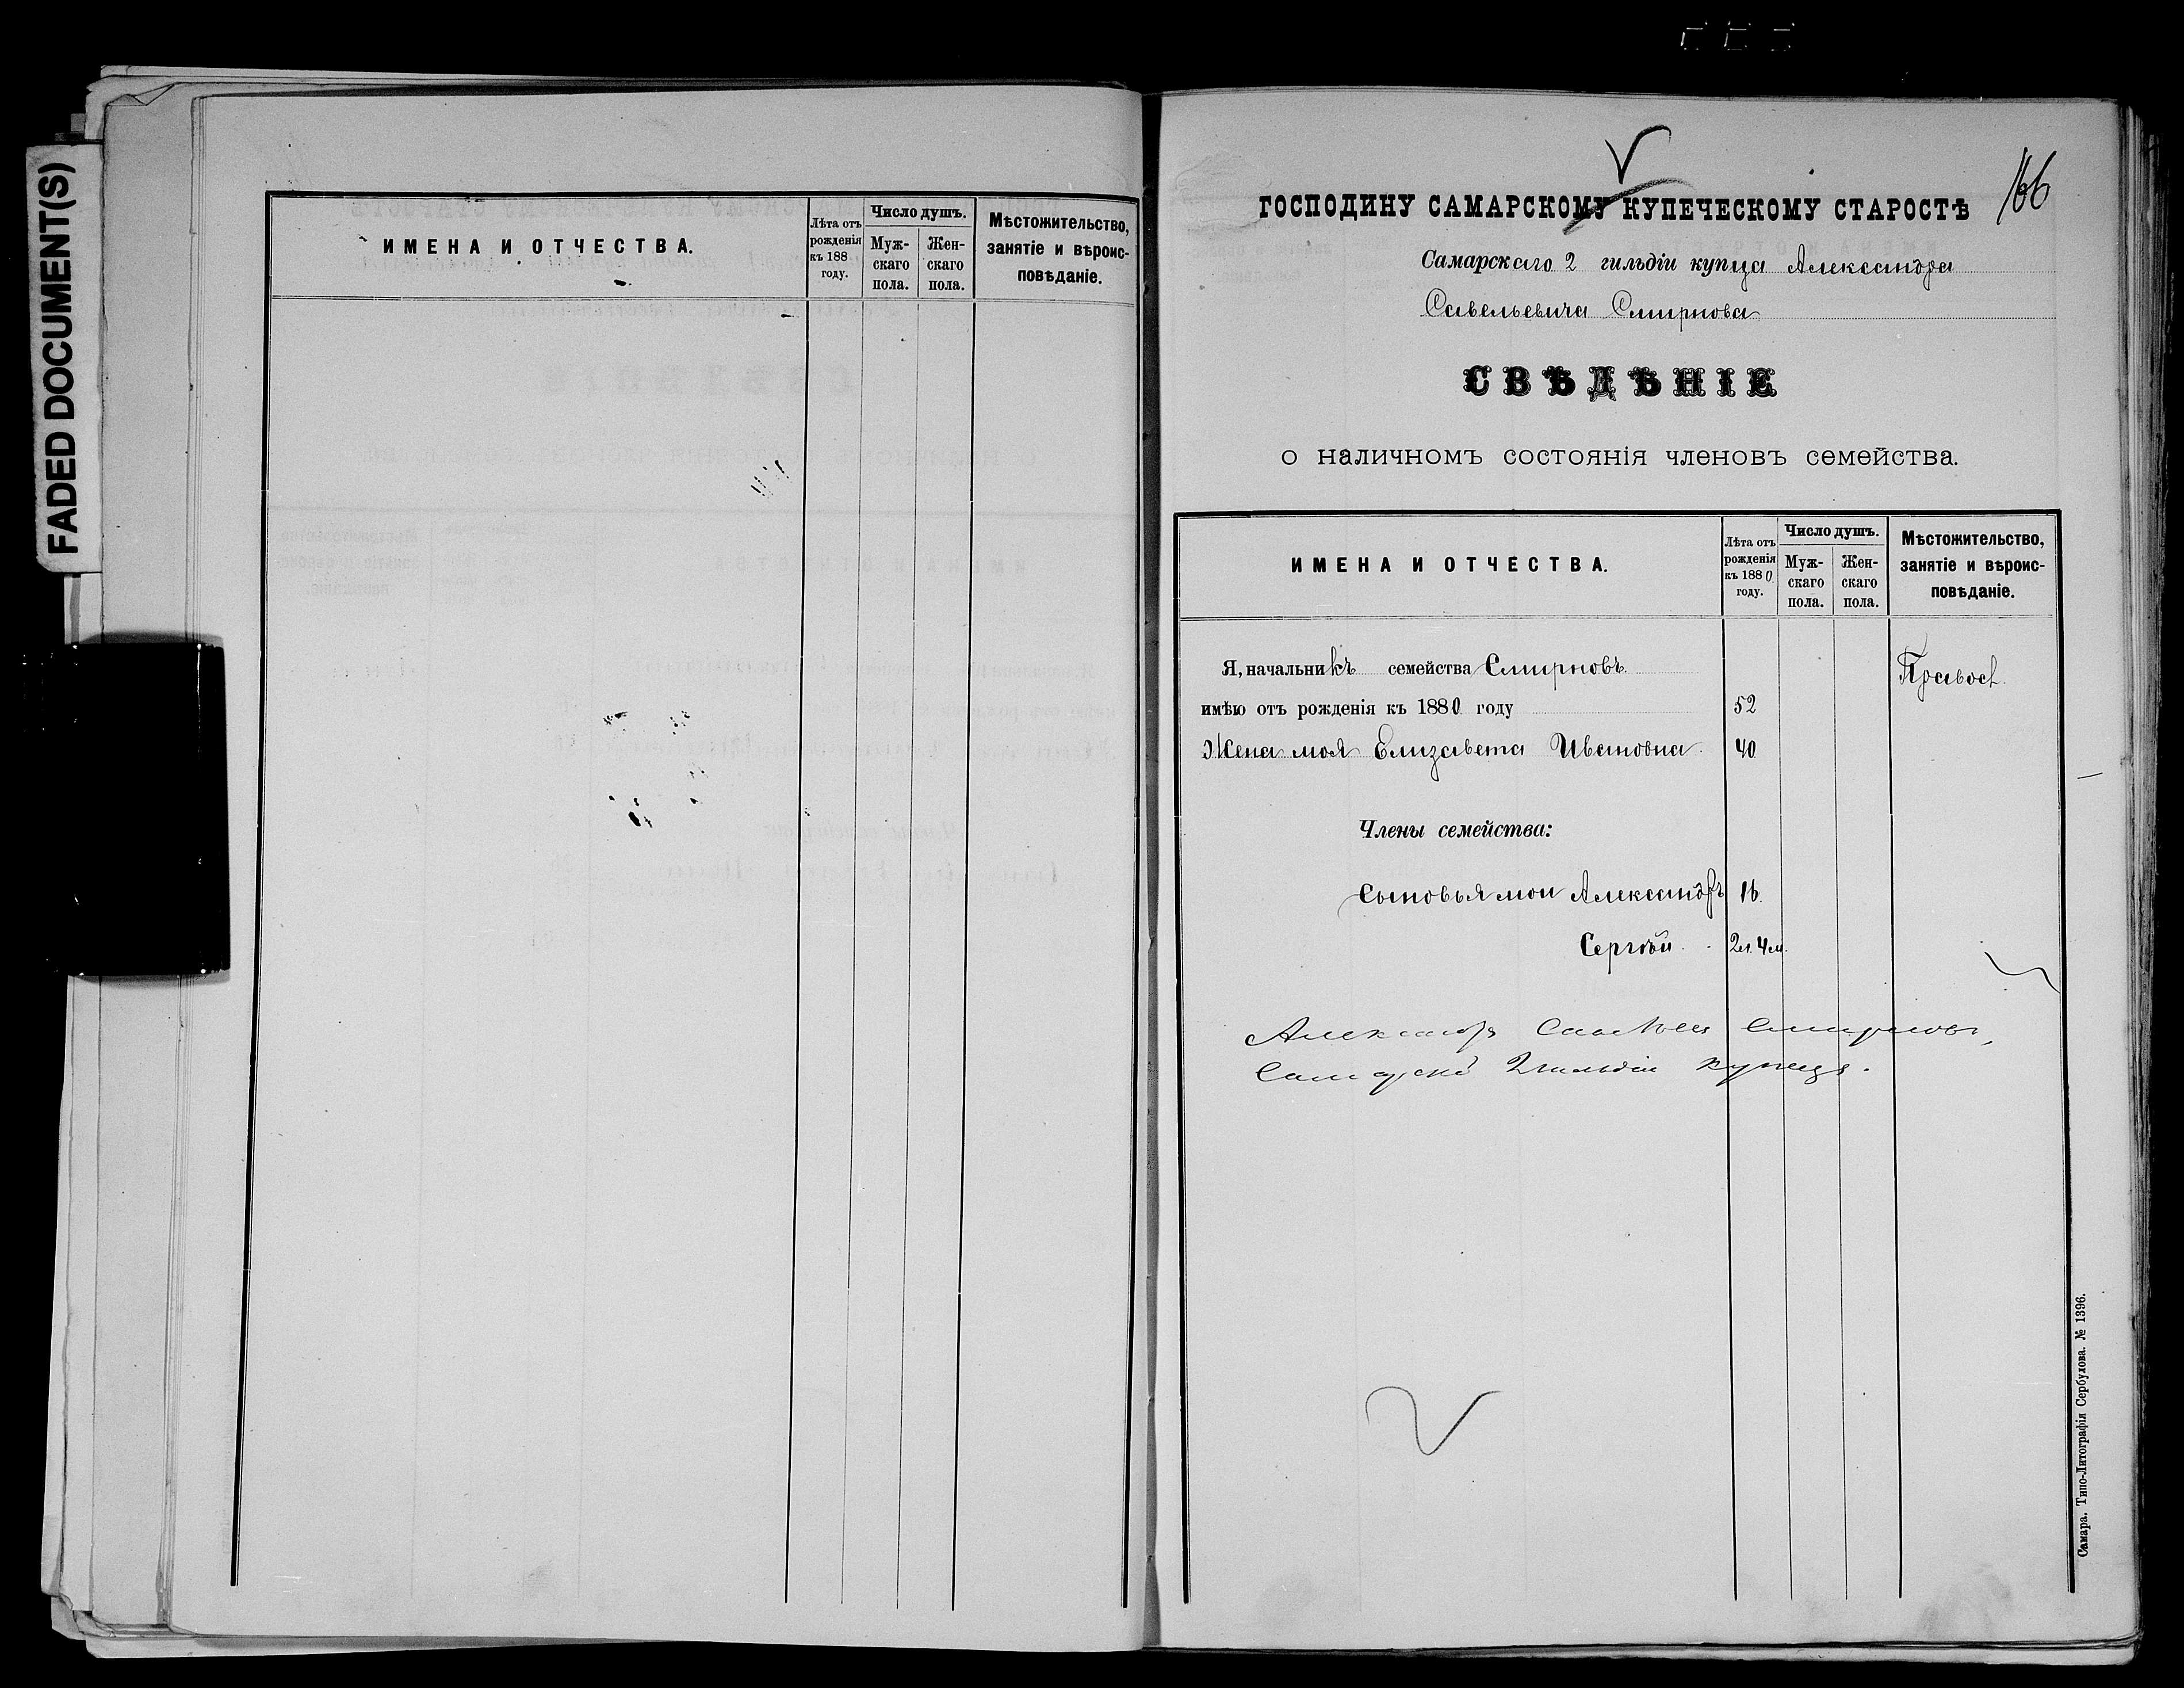 FADED DOCUMENT(S)
ИМЕНА И ОТЧЕСТВА.
Лѣта отъ рожденія къ 188 году.
Число душъ.
Мужскаго пола.
Женскаго пола.
Мѣстожительство, занятіе и вѣроисповѣданіе.
166
ГОСПОДИНУ САМАРСКОМУ КУПЕЧЕСКОМУ СТАРОСТѢ
Самарскаго 2 гильдіи купца Александра
Савельевича Смирнова
СВѢДѢНІЕ
о наличномъ состоянія членовъ семейства.
ИМЕНА И ОТЧЕСТВА.
Лѣта отъ рожденія къ 1880 году.
Число душъ.
Мужскаго пола.
Женскаго пола.
Мѣстожительство, занятіе и вѣроисповѣданіе.
Я, начальникъ семейства Смирновъ
Правос.
имѣю отъ рожденія къ 1880 году 52
Жена моя Елизавета Ивановна 40
Члены семейства:
Сыновья мои Александръ 16
Сергѣй 2 л. 4 м.
Александръ Савельев Смирновъ,
Самарскій 2 гильдіи купецъ.
Самара. Типо-Литографія Сербулова. № 1396.